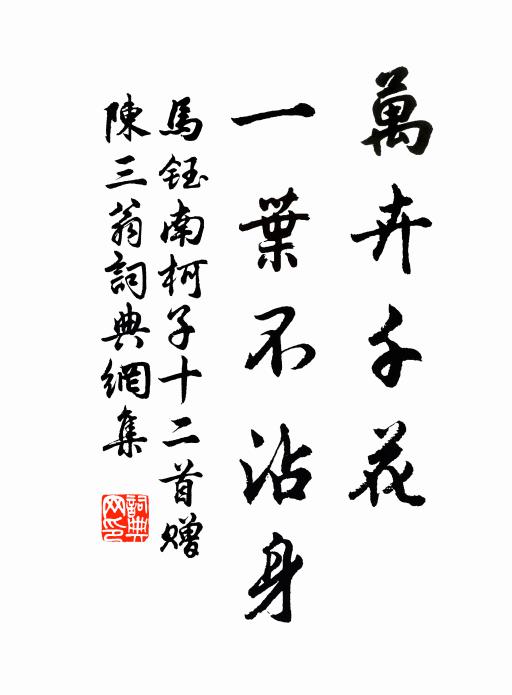 萬卉千花
一葉不沾身
馬鈺南柯子十二首贈
陳三翁詞典網集
詞典
网印